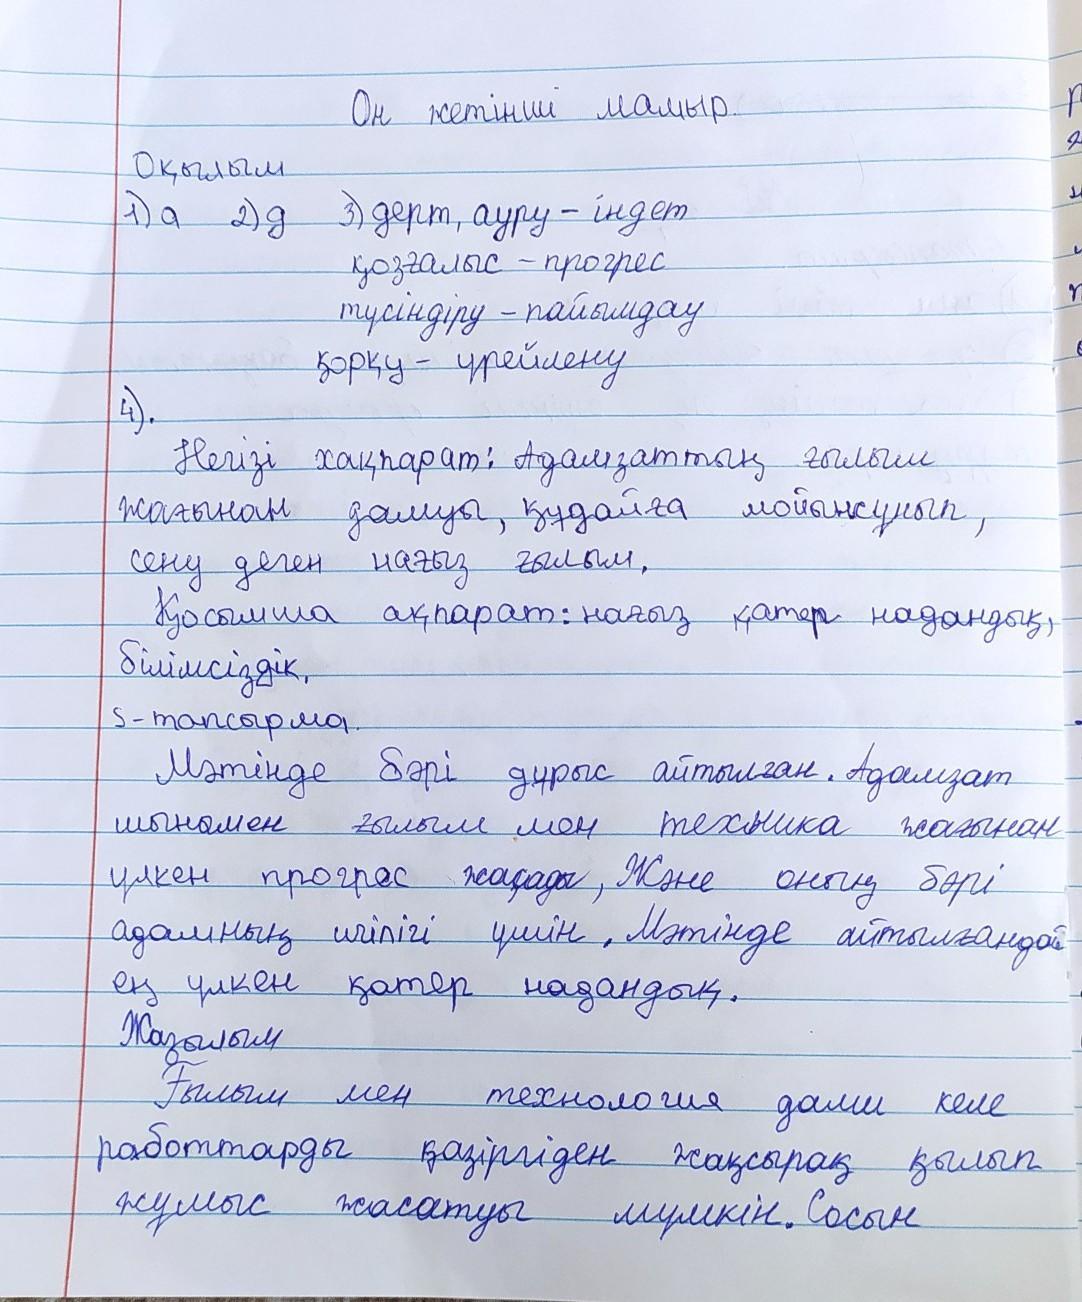 Он жетінші мамыр.
Оқылым
1) а 2) д 3) дерт, ауру – індет
қозғалыс – прогрес
түсіндіру – пайымдау
қорқу – үрейлену
4).
Негізі хақпарат: Адамзаттың ғылым
жағынан дамуы, құдайға мойынсұнып,
сену деген нағыз ғылым.
Қосымша ақпарат: нағыз қатер надандық,
білімсіздік.
5-тапсырма.
Мәтінде бәрі дұрыс айтылған. Адамзат
шынымен ғылым мен техника жағынан
үлкен прогрес жасады, Және оның бәрі
адамның игілігі үшін. Мәтінде айтылғандай
ең үлкен қатер надандық.
Жазылым
Ғылым мен технология дами келе
работтарды қазіргіден жақсырақ қылып
жұмыс жасатуы мүмкін. Сосын